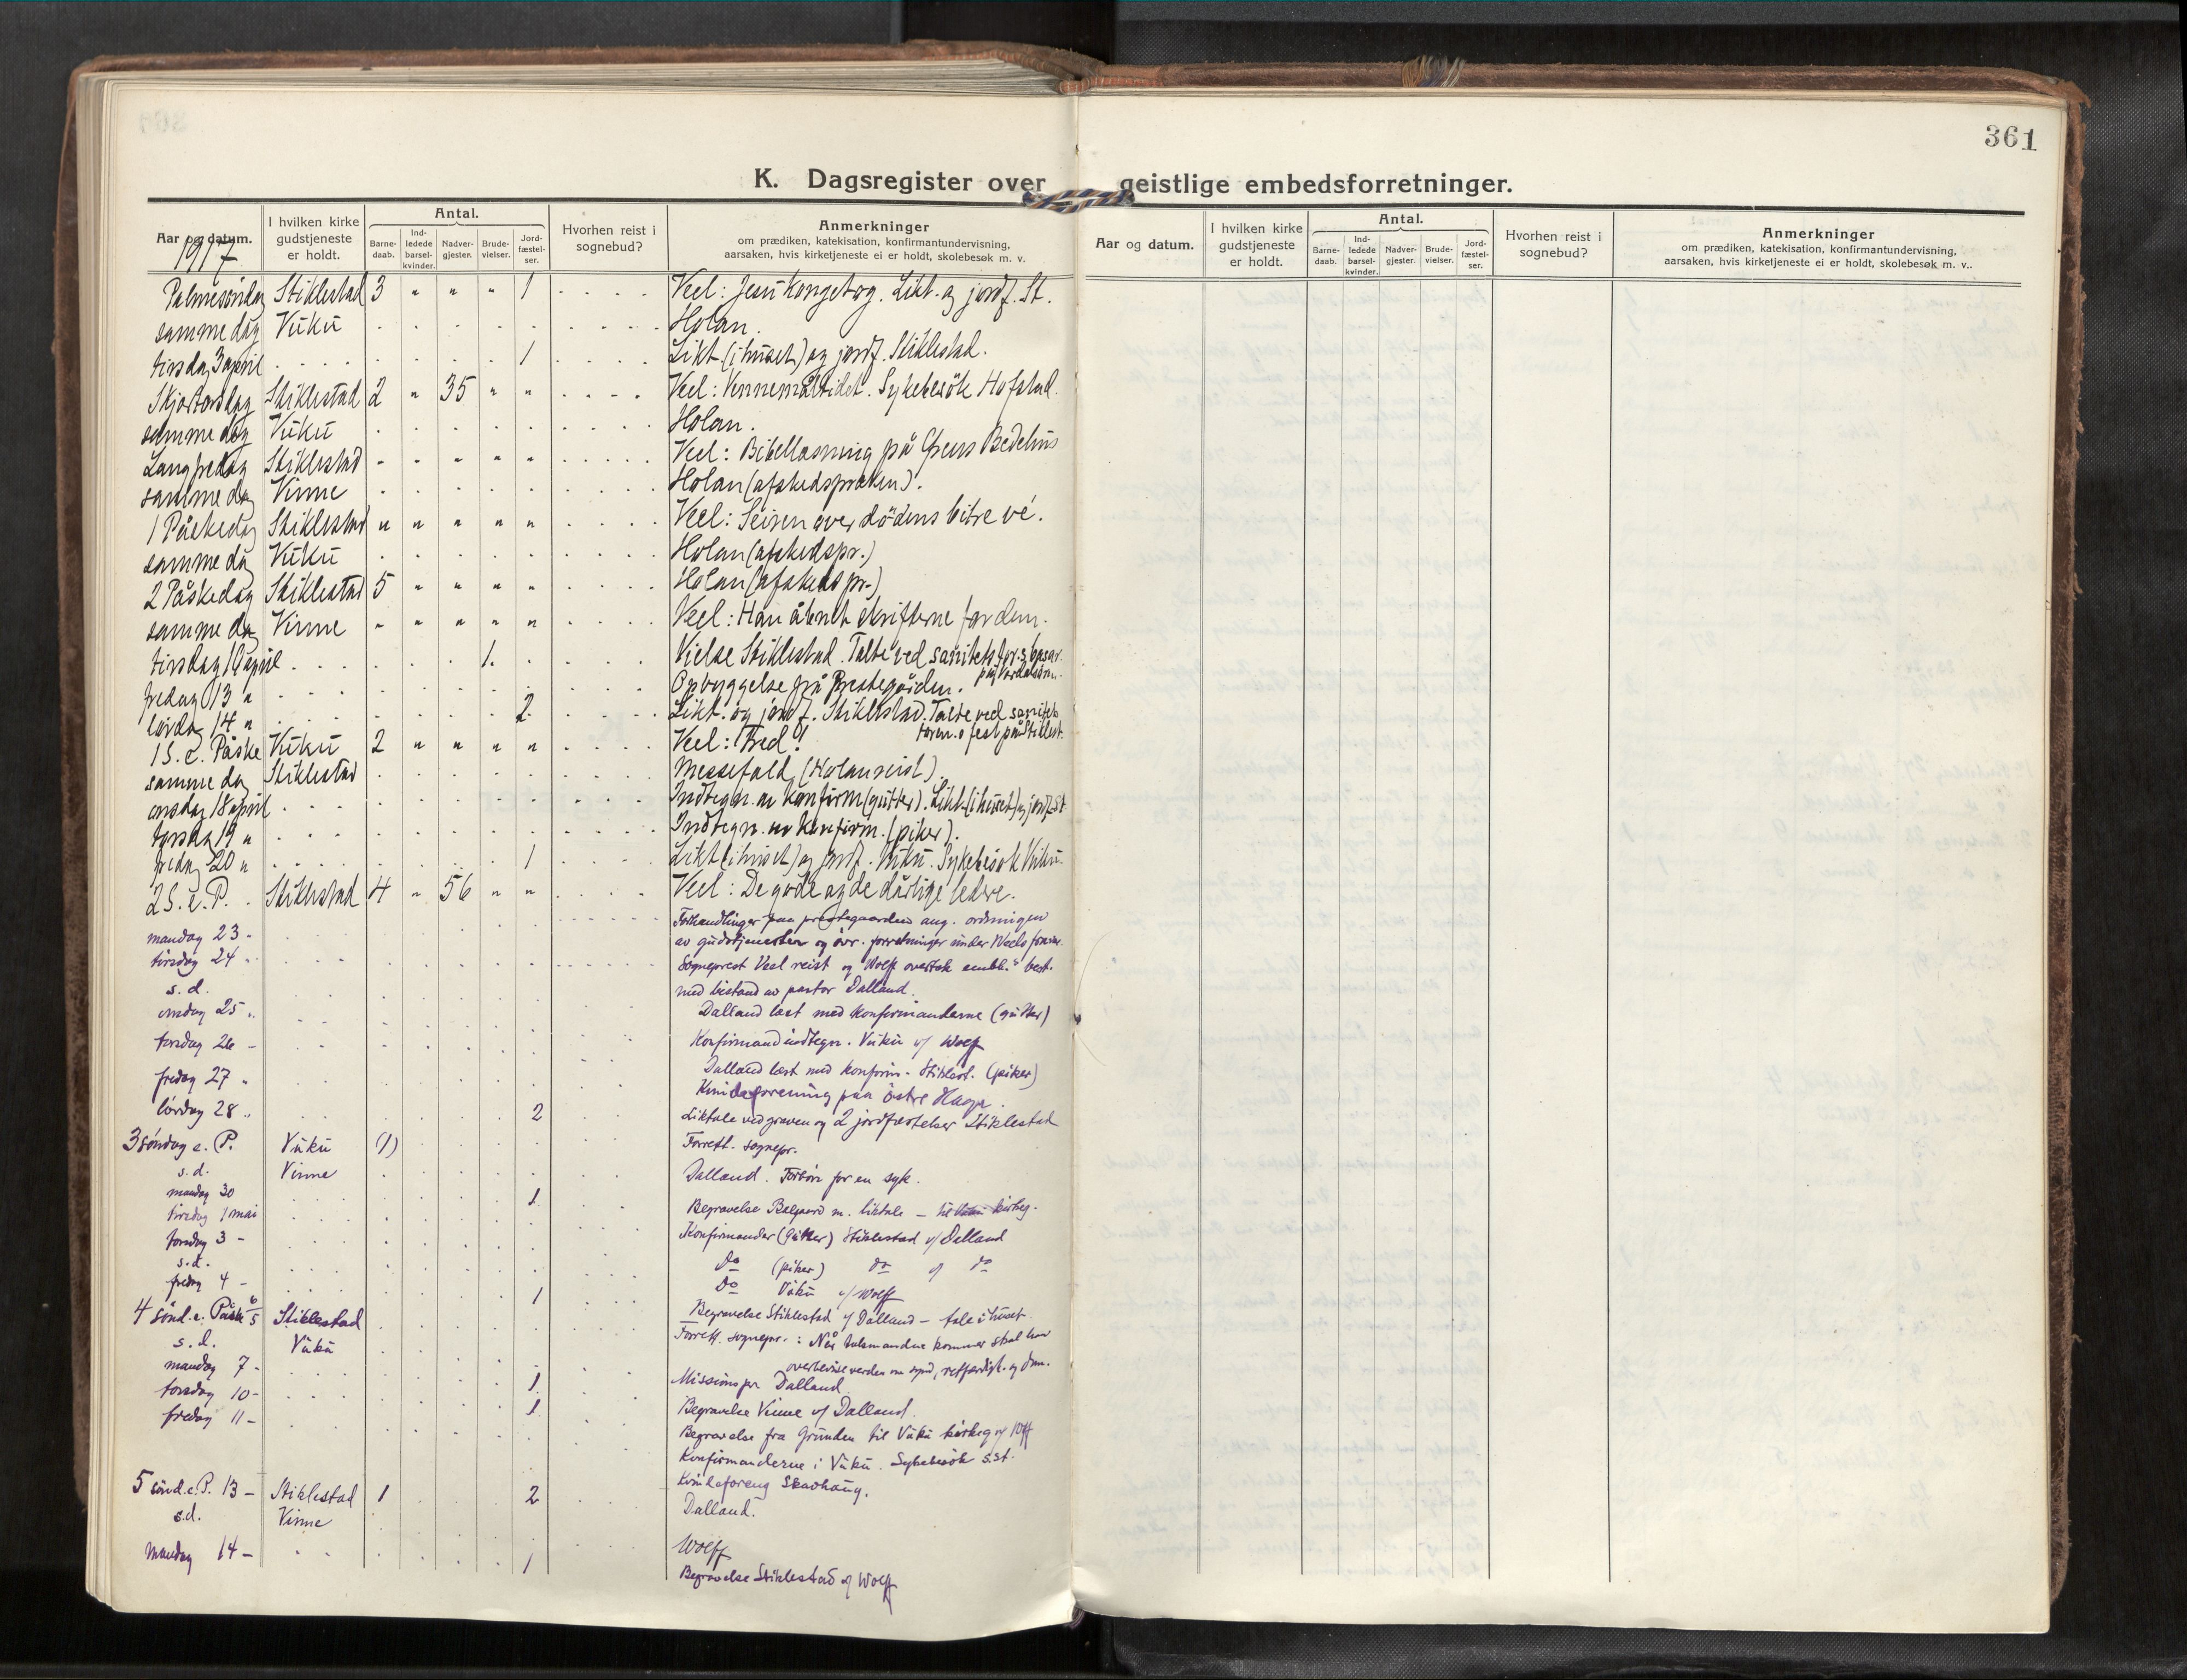 361
K. Dagsregister over geistlige embedsforretninger.
Aar og datum.
1917
I hvilken kirke
gudstjeneste
er holdt.
Antal.
Barne-
daab.
Ind-
ledede
barsel-
kvinder.
Nadver-
gjester.
Brude-
vielser.
Jord-
fæstel-
ser.
Hvorhen reist i
sognebud?
Anmerkninger
om prædiken, katekisation, konfirmantundervisning,
aarsaken, hvis kirketjeneste ei er holdt, skolebesøk m. v.
Palmesöndag Stiklestad 3 " " " 1 Veel: Jesu kongetog. Likt. og jordf. St.
samme dag Vuku Holan.
tirsdag 3 april 1 Likt. (i huset) og jordf. Stiklestad.
Skjærtorsdag Stiklestad 2 " 35 " " Veel: Vennemåltidet. Sykebesök Hofstad.
samme dag Vuku Holan.
Langfredag Stiklestad " " " " " Veel: Bibellæsning på Bedehus
samme dag Vinne Holan (afskedspræken).
1 Påskedag Stiklestad " " " " " Veel: Seiren over dödens bitre vé.
samme dag Vuku Holan (afskedspr.)
2 Påskedag Stiklestad 5 " " " " Holan (afskedspr.)
samme dag Vinne " " " " " Veel: Han åbnet skrifterne for dem.
tirsdag 10 april 1. Vielse Stiklestad. Talte ved sanitetsfor.s basar
på Verdalsörn.
fredag 13 " Opbyggelse på Prestegården.
lördag 14 " 2 Likt. og jordf. Stiklestad. Talte ved sanitets
foren.s fest på Stiklest.
1 S. e. Påske Vuku 2 " " " " Veel: Fred!
samme dag Stiklestad Messefald, (Holan reist).
onsdag 18 april Indtegn. av konfirm (gutter). Likt. (i huset) og jordf. St.
torsdag 19 " Indtegn. av konfirm. (piker).
fredag 20 " 1 Likt. (i huset) og jordf. Vuku. Sykebesök Vuku.
2 S. e. P. Stiklestad 4 " 56 " " Veel: De gode og de dårlige ledere.
mandag 23 - Forhandlinger paa prestegaarden ang. ordningen
av gudstjenester og övr. forretninger under Veels
tirsdag 24 " Sogneprest Veel reist og Wolff overtok best.
s. d. med bistand av pastor Dalland.
onsdag 25 " Dalland læst med konfirmanderne (gutter)
torsdag 26 - Konfirmandindtegn. Vuku v/ Wolff
fredag 27 " Dalland læst med konfirm. Stiklest. (piker)
Kvindeforening paa östre Haga.
lördag 28 " 2 Liktale ved graven og 2 jordfæstelser Stiklestad
3 söndag e. P. Vuku (1) Forrett. sognepr.
s. d. Vinne Dalland. Forbön for en syk.
mandag 30 1 Begravelse m. liktale - til kirkeg.
tirsdag 1 mai Konfirmander (gutter) Stiklestad v/ Dalland
torsdag 3 - Do (piker) do v/ do
s. d. Do Vuku v/ Wolff
fredag 4 - 1 Begravelse Stiklestad v/ Dalland - tale i huset.
4 sönd. e. Påsk 6/5 Stiklestad Forrett. sognepr.: Når talsmanden kommer skal han
overbevise verden om synd, retfærdigh. og dom.
s. d. Vuku Missionspr. Dalland.
mandag 7 - 1 Begravelse Vinne v/ Dalland.
torsdag 10 - 1 Begravelse fra Grunden til Vuku kirkeg v/ Wff
fredag 11 - Konfirmanderne i Vuku. Sykebesök s.st.
Kvindeforeng Skavhaug.
5 sönd. e. P. 13 - Stiklestad 1 2 Dalland.
s.d. Vinne Wolff
mandag 14 - 1 Begravelse Stiklestad v/ Wolff
Aar og datum.
I hvilken kirke
gudstjeneste
er holdt.
Antal.
Barne-
daab.
Ind-
ledede
barsel-
kvinder.
Nadver-
gjester.
Brude-
vielser.
Jord-
fæstel-
ser.
Hvorhen reist i
sognebud?
Anmerkninger
om prædiken, katekisation, konfirmantundervisning,
aarsaken, hvis kirketjeneste ei er holdt, skolebesøk m. v..